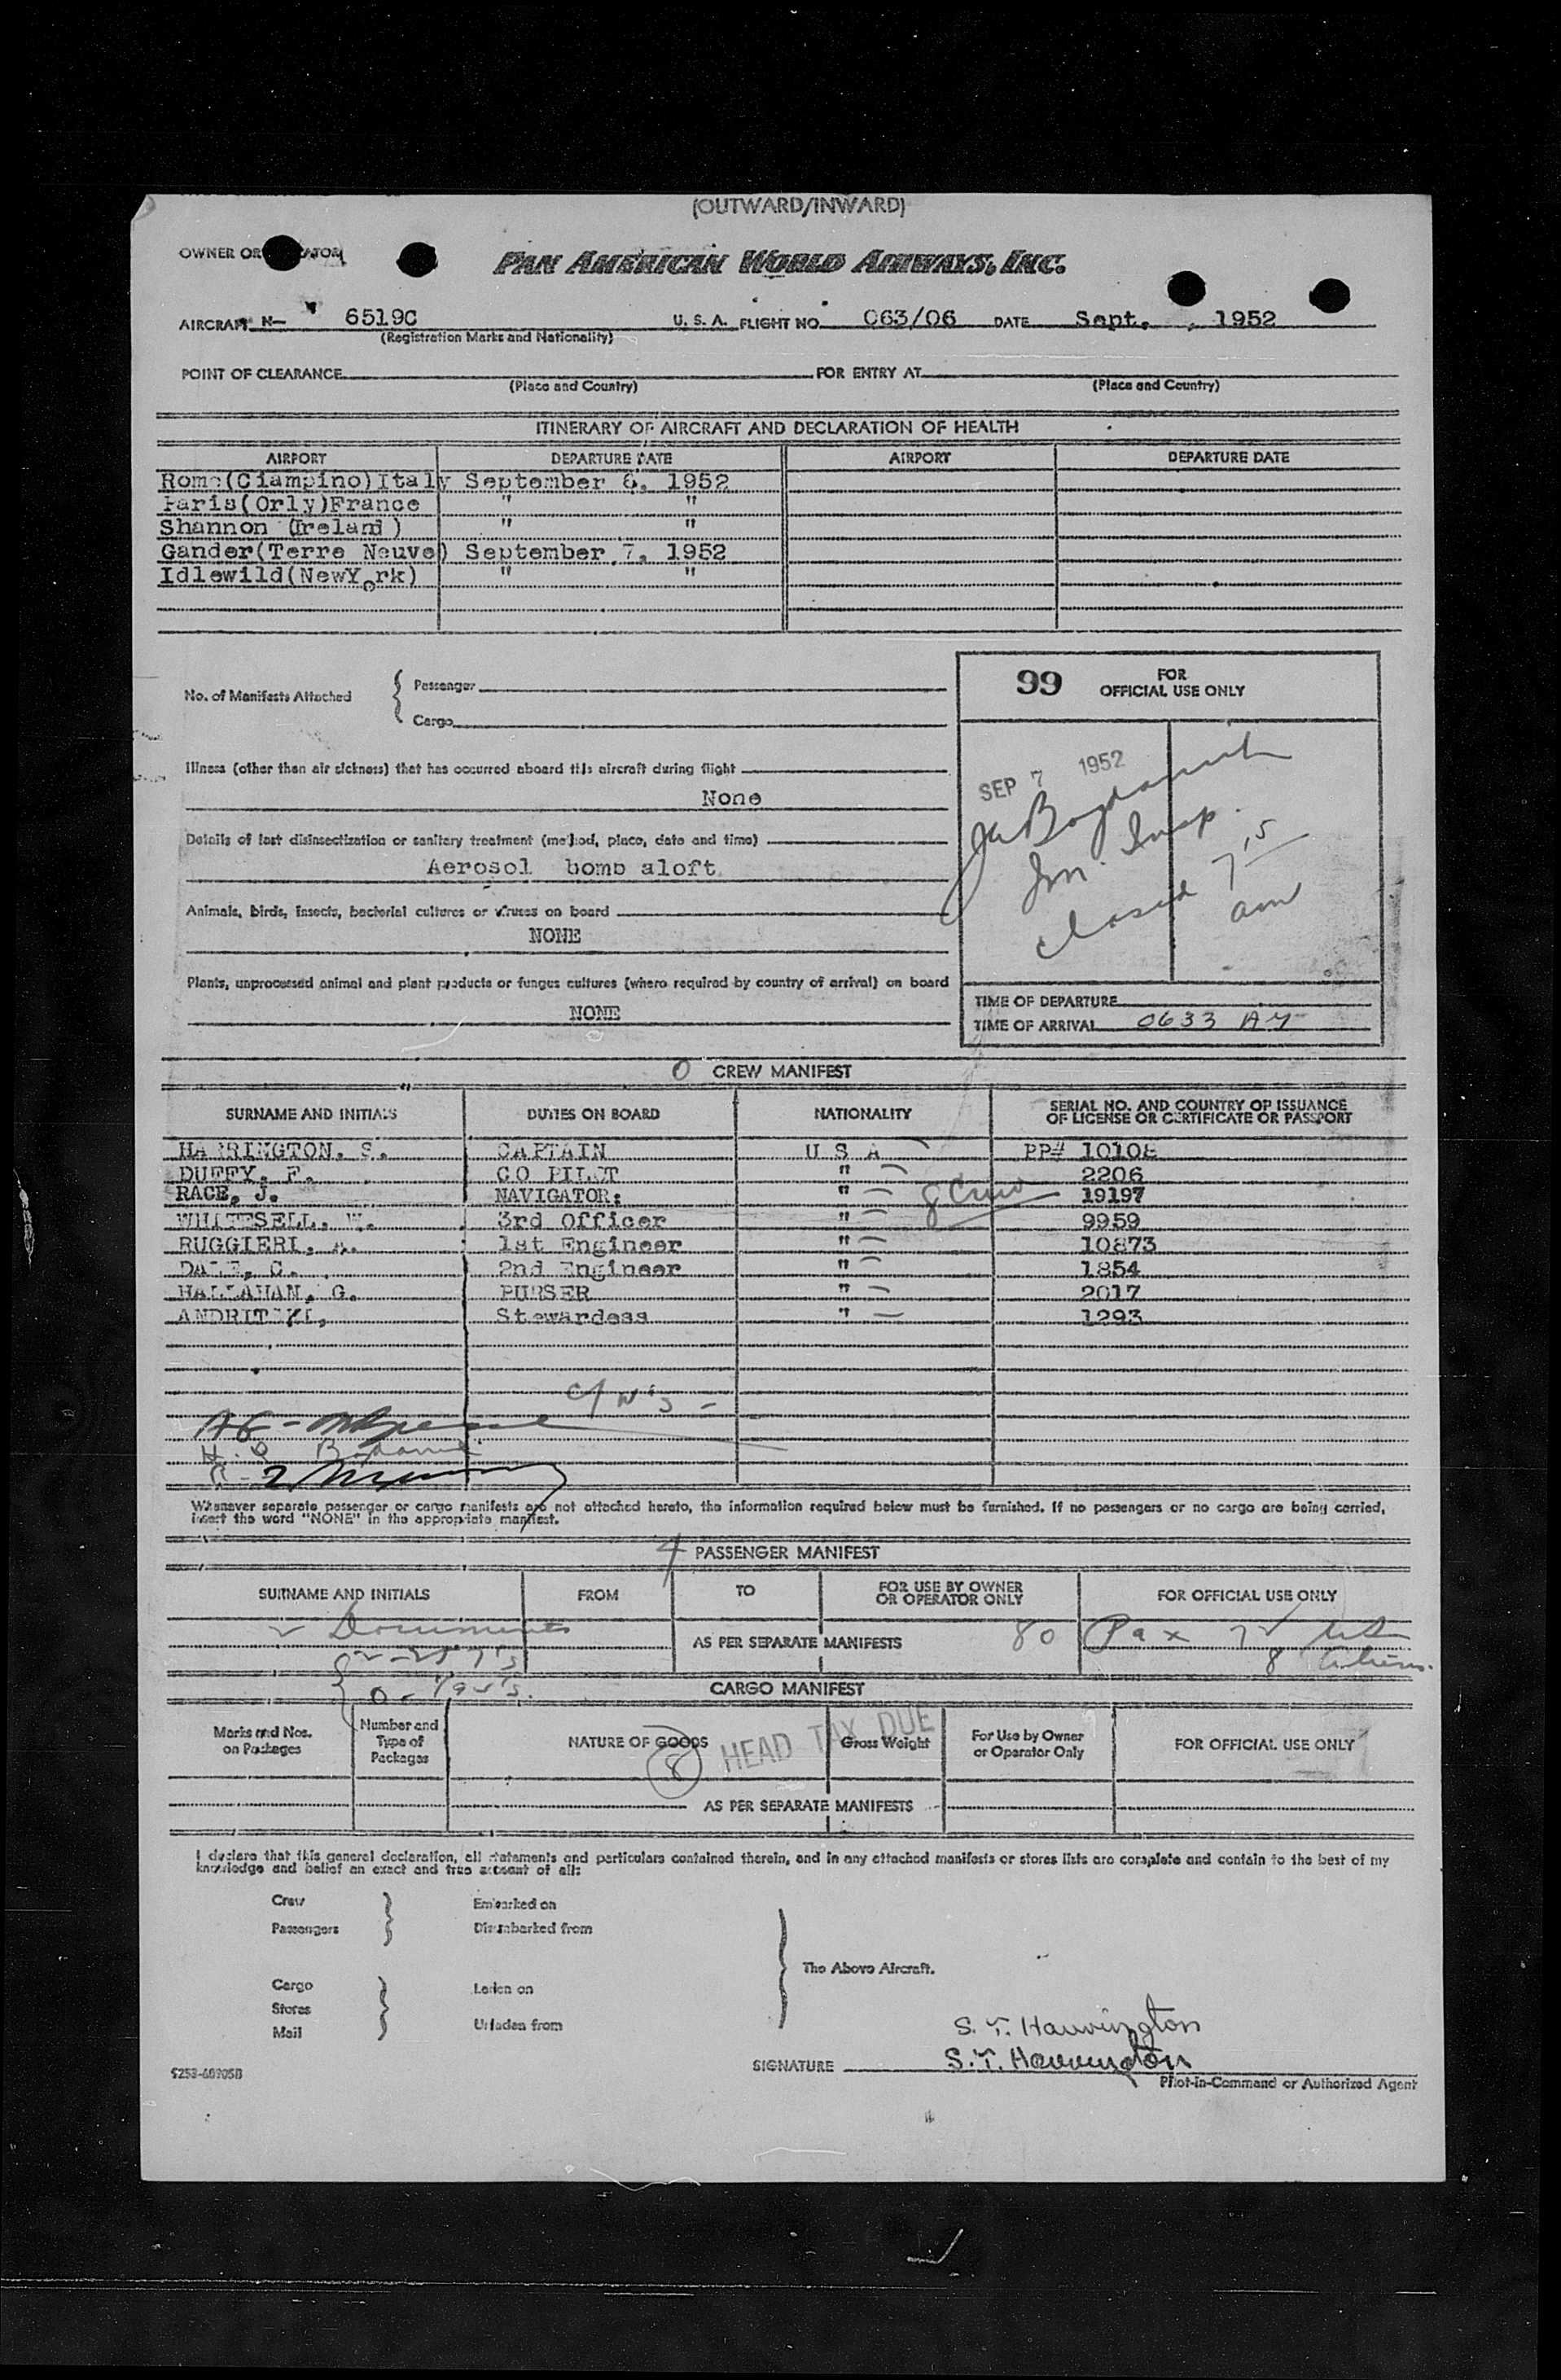 (OUTWARD/INWARD)
OWNER OR
PAN AMERICAN WORLD AIRWAYS, INC.
AIRCRAFT N- 6519C U. S. A. FLIGHT NO. 063/06 DATE Sept. , 1952
(Registration Marks and Nationality)
POINT OF CLEARANCE FOR ENTRY AT
(Place and Country) (Place and Country)
ITINERARY OF AIRCRAFT AND DECLARATION OF HEALTH
AIRPORT DEPARTURE DATE AIRPORT DEPARTURE DATE
Rome(Ciampino)Italy September 6, 1952
Paris(Orly)France " "
Shannon (Ireland) " "
Gander(Terre Neuve) September 7, 1952
Idlewild(NewYork) " "
No. of Manifests Attached
Passenger
Cargo
99 FOR OFFICIAL USE ONLY
Illness (other than air sickness) that has occurred aboard this aircraft during flight
None
SEP 7 1952
Details of last disinsectization or sanitary treatment (method, place, date and time)
Aerosol bomb aloft
Im. Insp.
closed 7 15 am
Animals, birds, insects, bacterial cultures or viruses on board
NONE
Plants, unprocessed animal and plant products or fungus cultures (where required by country of arrival) on board
NONE
TIME OF DEPARTURE
TIME OF ARRIVAL 0633 AM
0 CREW MANIFEST
SURNAME AND INITIALS DUTIES ON BOARD NATIONALITY SERIAL NO. AND COUNTRY OF ISSUANCE
OF LICENSE OR CERTIFICATE OR PASSPORT
HARRINGTON, S. CAPTAIN U S A PP# 10108
DUFFY, F. CO PILOT " 2206
RACE, J. NAVIGATOR: " 8 Crew 19197
WHITESELL, W. 3rd Officer " 9959
RUGGIERI, A. 1st Engineer " 10873
DALE, C. 2nd Engineer " 1854
HALLAHAN, G. PURSER " 2017
Stewardess " 1293
Whenever separate passenger or cargo manifests are not attached hereto, the information required below must be furnished. If no passengers or no cargo are being carried,
insert the word "NONE" in the appropriate manifest.
4 PASSENGER MANIFEST
SURNAME AND INITIALS FROM TO FOR USE BY OWNER
OR OPERATOR ONLY FOR OFFICIAL USE ONLY
Documents
AS PER SEPARATE MANIFESTS 80 Pax 72
8 Aliens.
CARGO MANIFEST
Marks and Nos.
on Packages
Number and
Type of
Packages
NATURE OF GOODS
Gross Weight
For Use by Owner
or Operator Only
FOR OFFICIAL USE ONLY
8 HEAD TAX DUE
AS PER SEPARATE MANIFESTS
I declare that this general declaration, all statements and particulars contained therein, and in any attached manifests or stores lists are complete and contain to the best of my
knowledge and belief an exact and true account of all:
Crew Embarked on
Passengers Disembarked from
The Above Aircraft.
Cargo Laden on
Stores
Mail Unladen from
S. T. Harrington
SIGNATURE S. T. Harrington
Pilot-in-Command or Authorized Agent